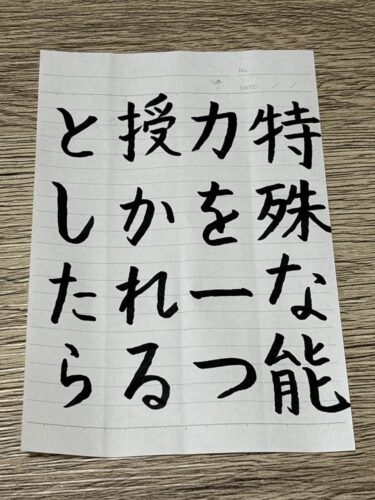 No.
DATE
特殊な能
力を一つ
授かれる
としたら